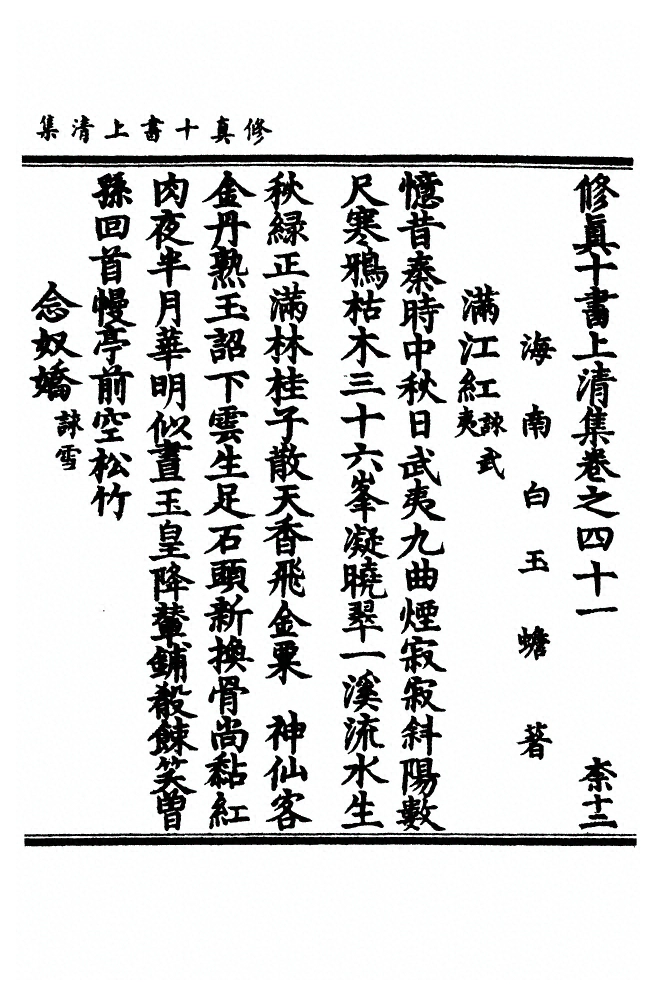 修真十書上清集
修真十書上清集卷之四十一　柰十二
海南白玉蟾著
滿江紅詠武夷
憶昔秦時中秋日武夷九曲煙寂寂斜陽數
尺寒鴉枯木三十六峯凝曉翠一溪流水生
秋緑正滿林桂子散天香飛金粟　神仙客
金丹熟玉詔下雲生足石頭新換骨尚黏紅
肉夜半月華明似晝玉皇降輦鋪殽餗笑曾
孫回首慢亭前空松竹
念奴嬌詠雪